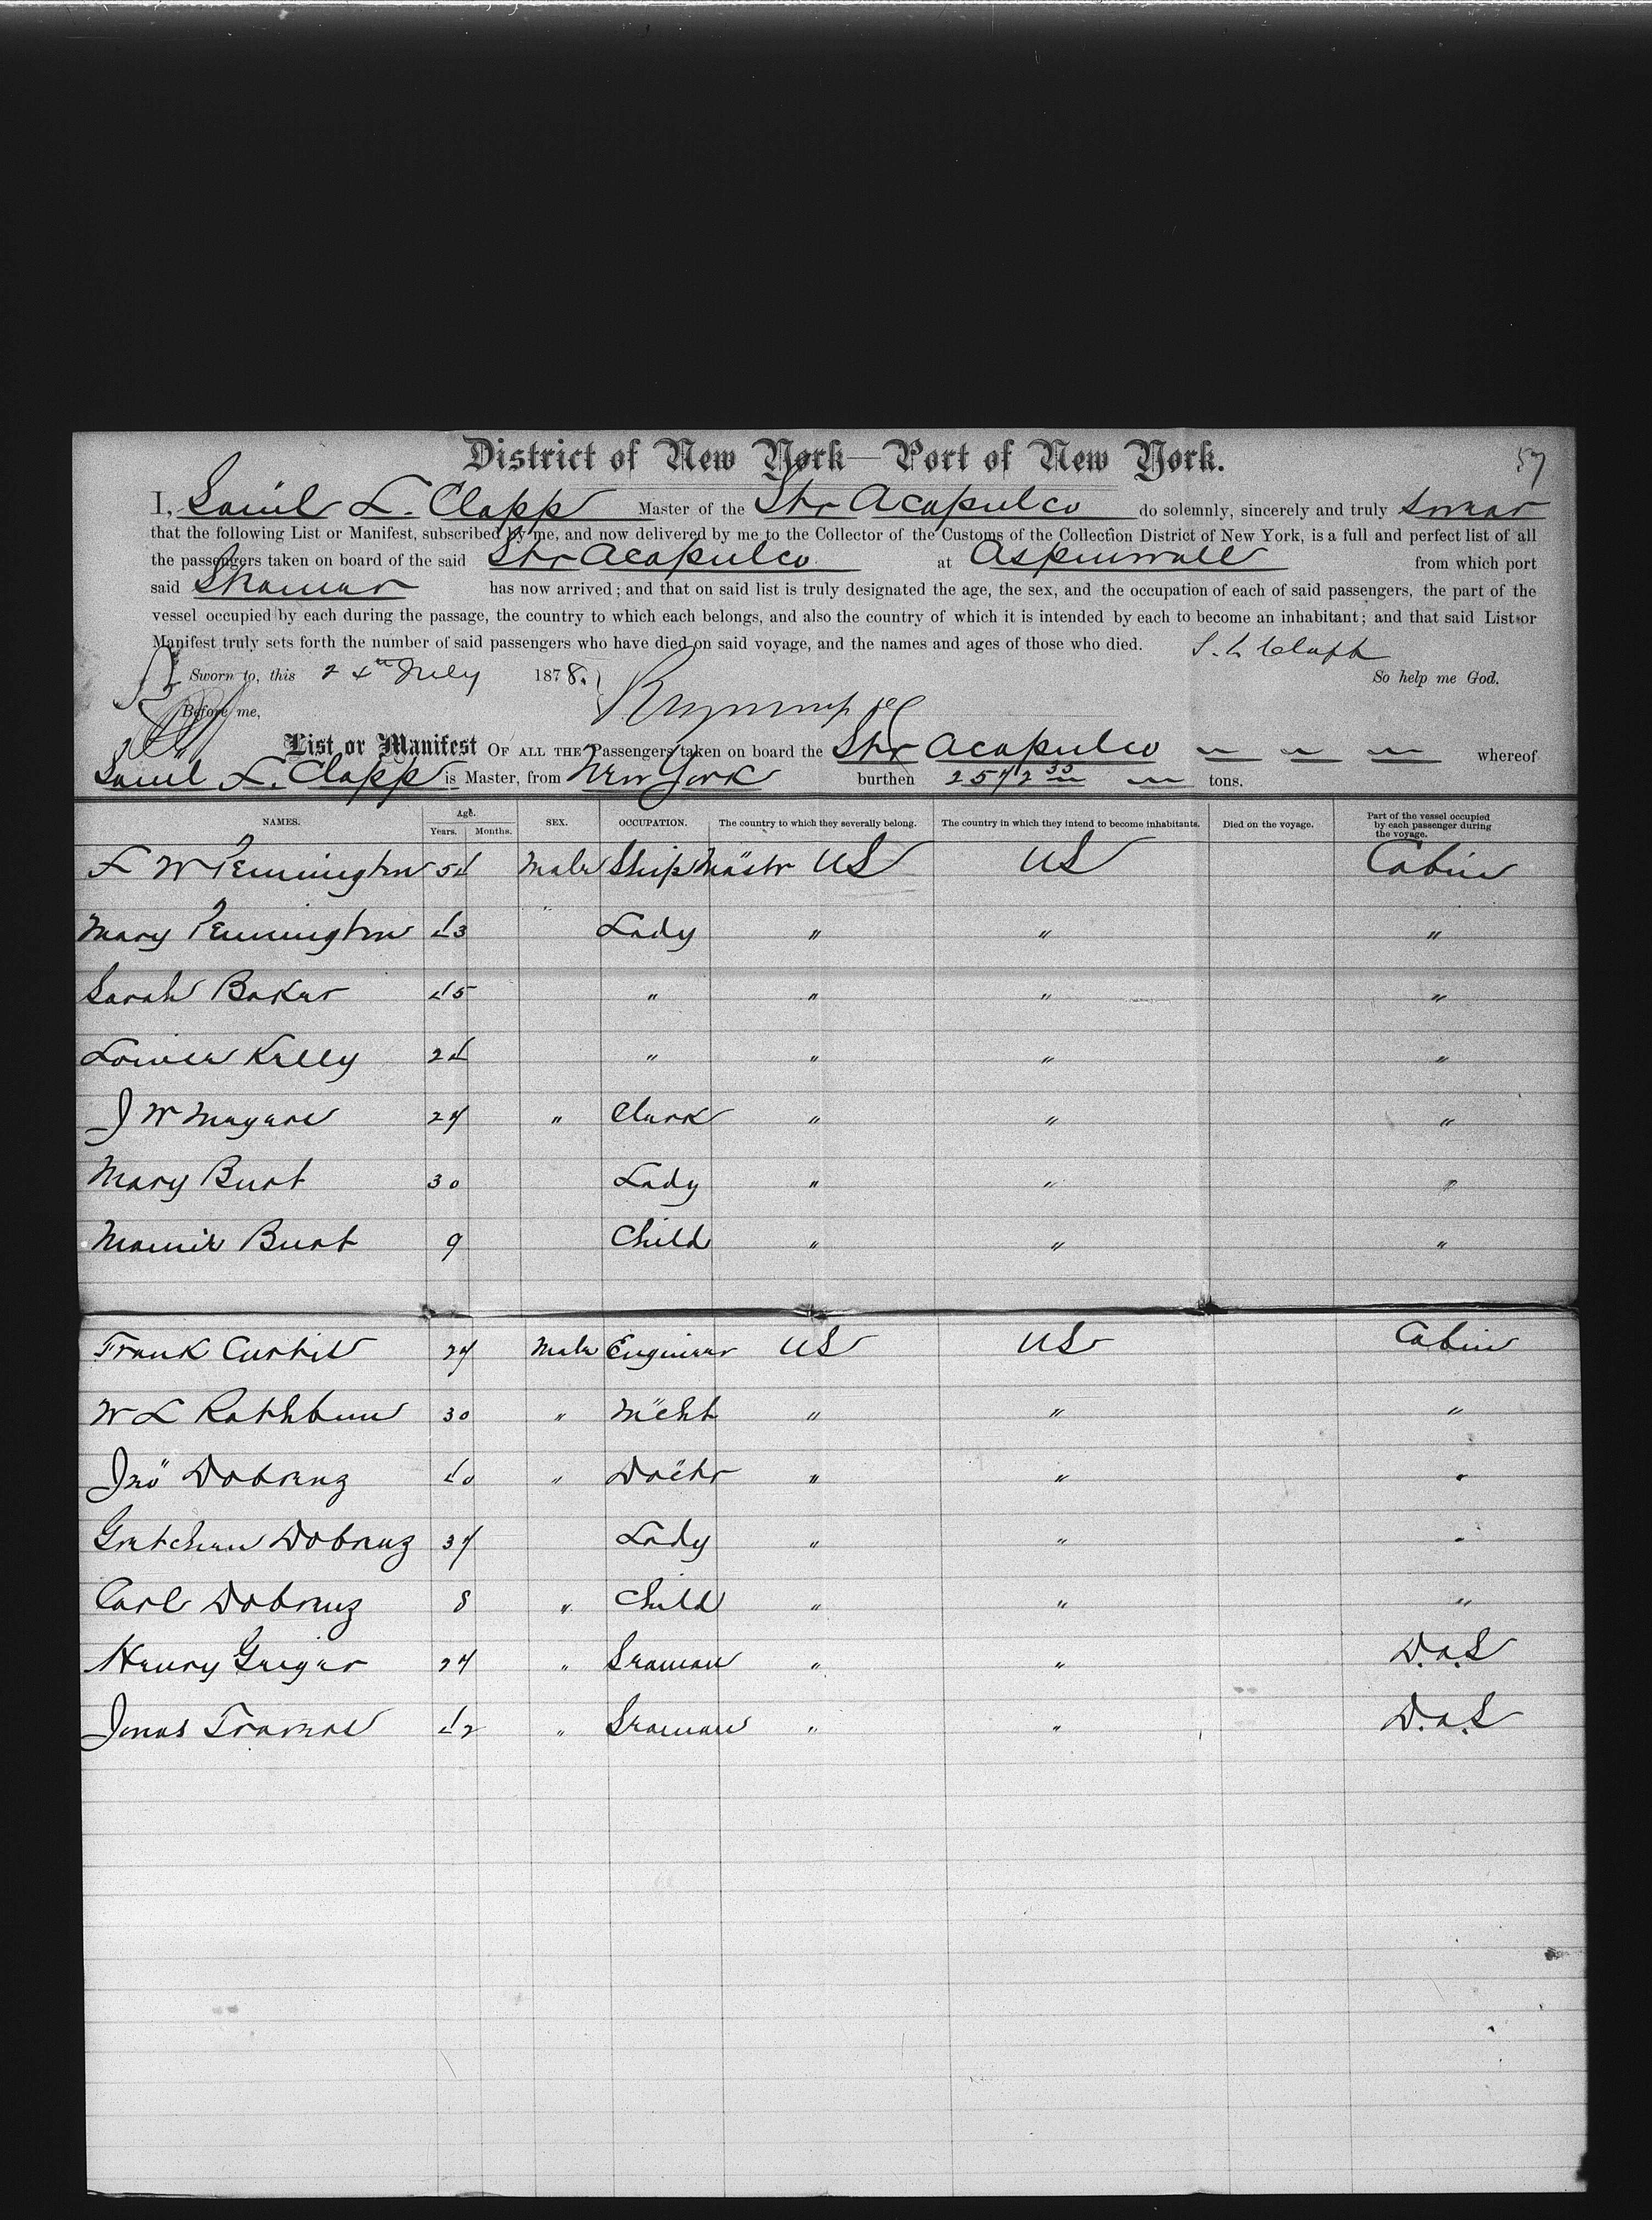 57
District of New York—Port of New York.
I, Sam'l L. Clapp Master of the Str Acapulco do solemnly, sincerely and truly swear
that the following List or Manifest, subscribed by me, and now delivered by me to the Collector of the Customs of the Collection District of New York, is a full and perfect list of all
the passengers taken on board of the said Str Acapulco at Aspinwall from which port
said Steamer has now arrived; and that on said list is truly designated the age, the sex, and the occupation of each of said passengers, the part of the
vessel occupied by each during the passage, the country to which each belongs, and also the country of which it is intended by each to become an inhabitant; and that said List or
Manifest truly sets forth the number of said passengers who have died on said voyage, and the names and ages of those who died. S. L Clapp
Sworn to, this 24th July 1878. So help me God.
Before me,
List or Manifest OF ALL THE Passengers taken on board the Str Acapulco whereof
Sam'l L. Clapp is Master, from New York burthen 2572 35 tons.
NAMES. Age. Years. Months. SEX. OCCUPATION. The country to which they severally belong. The country in which they intend to become inhabitants. Died on the voyage. Part of the vessel occupied by each passenger during the voyage.
L W Pennington 54 Male Ship Mastr US US Cabin
Mary Pennington 43 Lady " " "
Sarah Baker 45 " " " "
Louisa Kelly 24 " " " "
J W Magare 27 " Clerk " " "
Mary Burt 30 Lady " " "
Mamie Burt 9 Child " " "
Frank Curtis 27 Male Engineer US US Cabin
W L Rathbun 30 " Mcht " " "
Jno Dobrenz 40 " Doctr " " "
Gretchen Dobrenz 37 Lady " " "
Carl Dobrenz 8 " Child " " "
Henry Greger 27 " Seaman " " D.a.S
Jonas Travers 42 " Seaman " " D.a.S